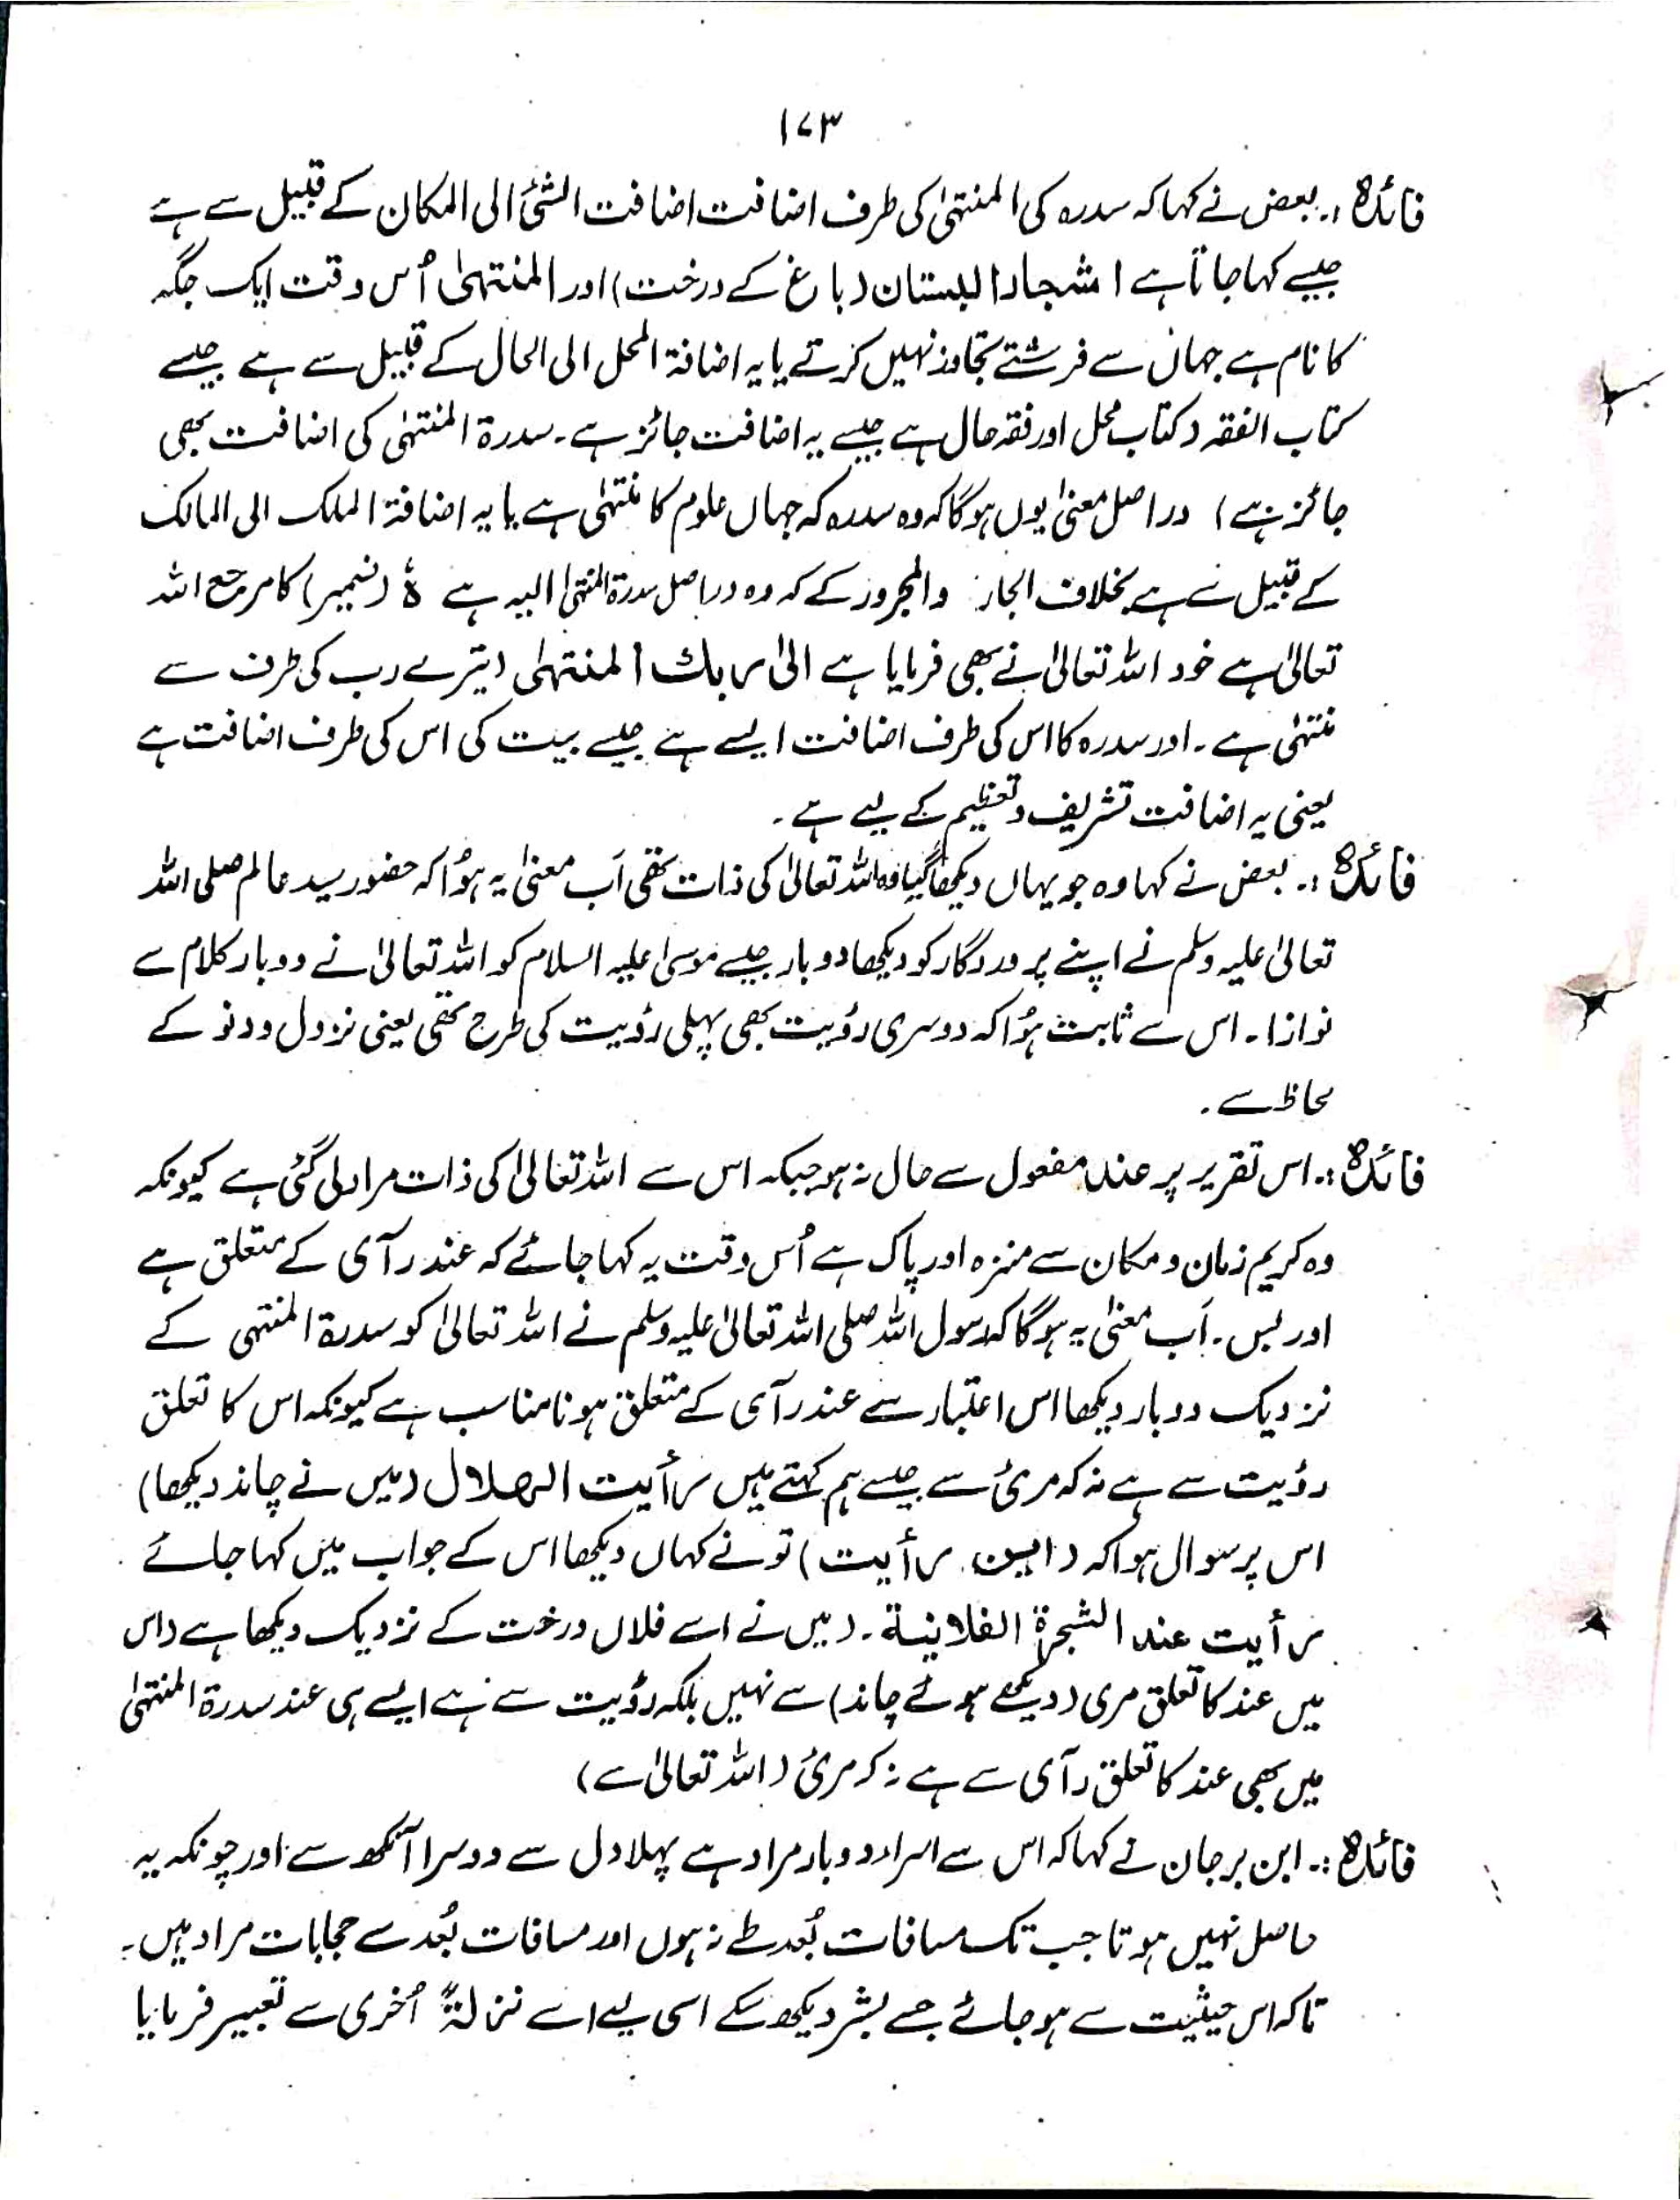 ۱۷۳
فائدہ :۔ بعض نے کہا کہ سدرہ کی المنتہیٰ کی طرف اضافت اضافت الشیٔ الی المکان کے قبیل سے ہے
جیسے کہا جاتا ہے اشجار البستان (باغ کے درخت) اور المنتہیٰ اُس وقت ایک جگہ
کا نام ہے جہاں سے فرشتے تجاوز نہیں کرتے یا یہ اضافۃ المحل الی الحال کے قبیل سے ہے جیسے
کتاب الفقہ (کتاب محل اور فقہ حال ہے جیسے یہ اضافت جائز ہے۔ سدرۃ المنتہیٰ کی اضافت بھی
جائز ہے) دراصل معنیٰ یوں ہوگا کہ وہ سدرہ کہ جہاں علوم کا منتہیٰ ہے یا یہ اضافۃ الملک الی المالک
کے قبیل سے ہے بخلاف الجار والمجرور کے کہ وہ دراصل سدرۃ المنتہیٰ الیہ ہے ہٗ (ضمیر) کا مرجع اللہ
تعالیٰ ہے خود اللہ تعالیٰ نے بھی فرمایا ہے الیٰ ربك المنتہیٰ (تیرے رب کی طرف سے
منتہیٰ ہے۔ اور سدرہ کا اس کی طرف اضافت ایسے ہے جیسے بیت کی اس کی طرف اضافت ہے
یعنی یہ اضافت تشریف و تعظیم کے لیے ہے۔
فائدہ :۔ بعض نے کہا وہ جو یہاں دیکھا گیا وہ اللہ تعالیٰ کی ذات تھی اَب معنیٰ یہ ہوُا کہ حضور سید عالم صلی اللہ
تعالیٰ علیہ وسلم نے اپنے پروردگار کو دیکھا دوبار جیسے موسیٰ علیہ السلام کو اللہ تعالیٰ نے دوبار کلام سے
نوازا۔ اس سے ثابت ہوُا کہ دوسری رؤیت بھی پہلی رؤیت کی طرح تھی یعنی نزول و دنو کے
لحاظ سے۔
فائدہ :۔ اس تقریر پر عند مفعول سے حال نہ ہو جبکہ اس سے اللہ تعالیٰ کی ذات مراد لی گئی ہے کیونکہ
وہ کریم زمان و مکان سے منزہ اور پاک ہے اُس وقت یہ کہا جائے کہ عند رآی کے متعلق ہے
اور بس۔ اَب معنیٰ یہ ہوگا کہ رسول اللہ صلی اللہ تعالیٰ علیہ وسلم نے اللہ تعالیٰ کو سدرۃ المنتہی کے
نزدیک دوبار دیکھا اس اعتبار سے عند رآی کے متعلق ہونا مناسب ہے کیونکہ اس کا تعلق
رؤیت سے ہے نہ کہ مرئ سے جیسے ہم کہتے ہیں رأیت الہلال (میں نے چاند دیکھا)
اس پر سوال ہوا کہ (این رأیت) تو نے کہاں دیکھا اس کے جواب میں کہا جائے
رأیت عند الشجرۃ الفلانیة۔ (میں نے اسے فلاں درخت کے نزدیک دیکھا ہے (اس
میں عند کا تعلق مری (دیکھے ہوئے چاند) سے نہیں بلکہ رؤیت سے ہے ایسے ہی عند سدرۃ المنتہیٰ
میں بھی عند کا تعلق رآی سے ہے نہ کہ مرئ (اللہ تعالیٰ سے)
فائدہ :۔ ابن برجان نے کہا کہ اس سے اسراء دوبار مراد ہے پہلا دل سے دوسرا آنکھ سے اور چونکہ یہ
حاصل نہیں ہوتا جب تک مسافات بُعد طے نہ ہوں اور مسافات بُعد سے حجابات مراد ہیں۔
تاکہ اس حیثیت سے ہو جائے جسے بشر دیکھ سکے اسی لیے اسے نزلۃً اُخری سے تعبیر فرمایا